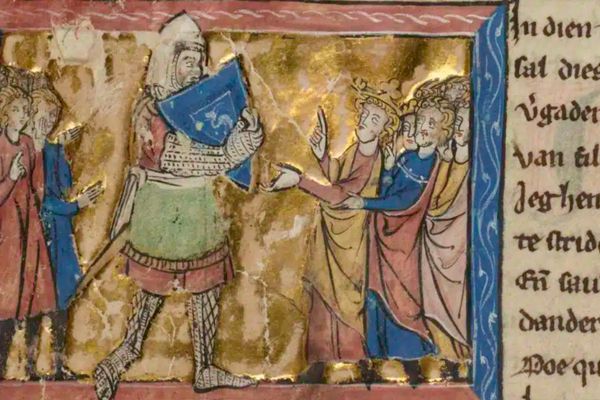 In dien
sal dies
v̕gader
van fil
Jeghen
te strid
En̄ sau
dander
Doe qu